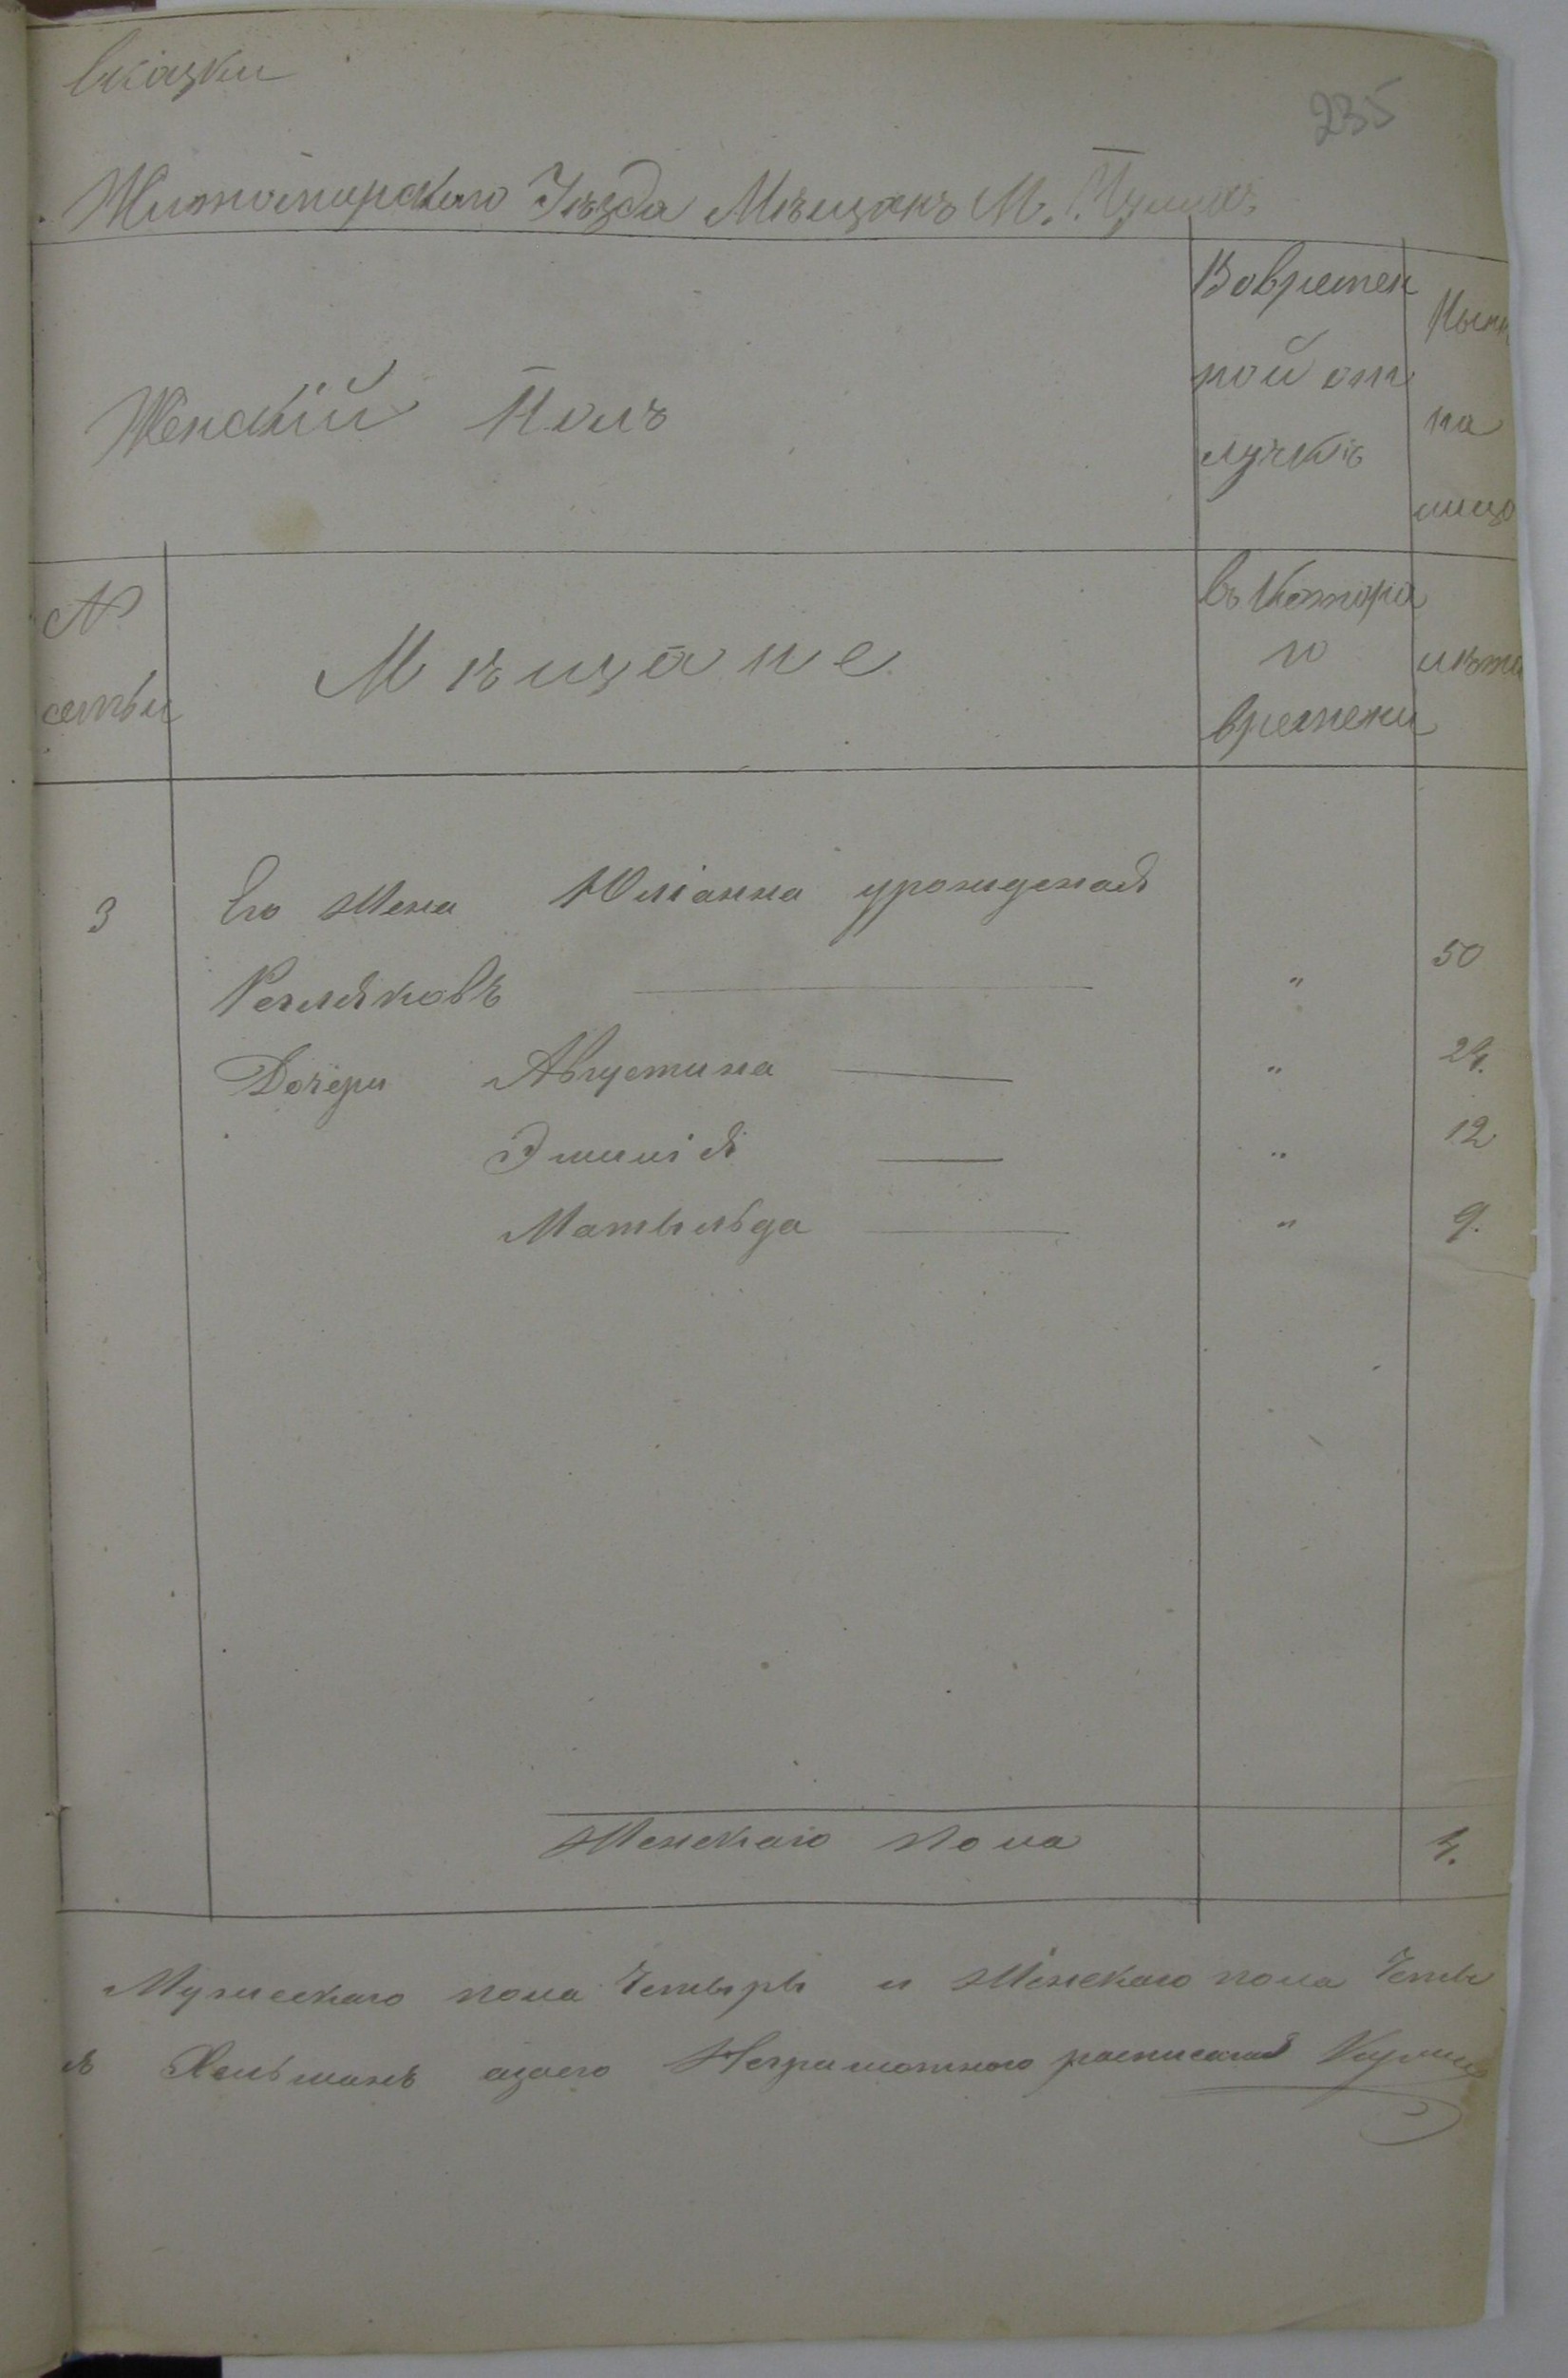 Сказки
235
Житомирского Уѣзда Мѣщанъ М. Пулинъ
Женскій Полъ
Вовремен
ной от
лучкѣ
Нынѣ
на
лицо
№
семьи
Мѣщане
Въ Которо
го
времени
лѣта
3 Его Жена Юліанна урожденая
Резляковъ " 50
Дочери Августина " 24.
Эмилія " 12
Матыльда " 9.
Женскаго пола 4.
Мужескаго пола Четыры и Женскаго пола Четы
азаего Неграмотного росписался